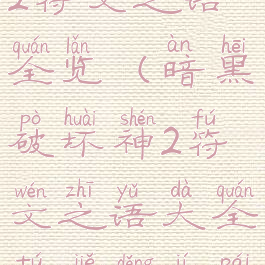 2符文之语
quán lǎn àn hēi
全览（暗黑
pò huài shén fú
破坏神2符
wén zhī yǔ dà quán
文之语大全